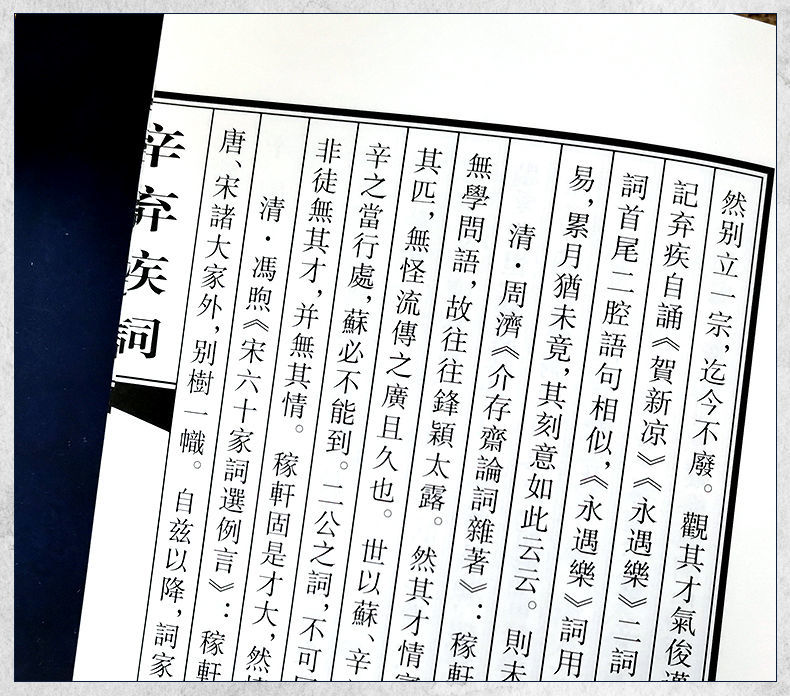 然别立一宗，迄今不廢。觀其才氣俊邁
記弃疾自誦《賀新凉》《永遇樂》二詞
詞首尾二腔語句相似，《永遇樂》詞用
易，累月猶未竟，其刻意如此云云。則未
清·周濟《介存齋論詞雜著》：稼軒
無學問語，故往往鋒穎太露。然其才情富
其匹，無怪流傳之廣且久也。世以蘇、辛
辛之當行處，蘇必不能到。二公之詞，不可同
非徒無其才，并無其情。稼軒固是才大，然情
清·馮煦《宋六十家詞選例言》：稼軒
唐、宋諸大家外，别樹一幟。自兹以降，詞家
辛弃疾詞